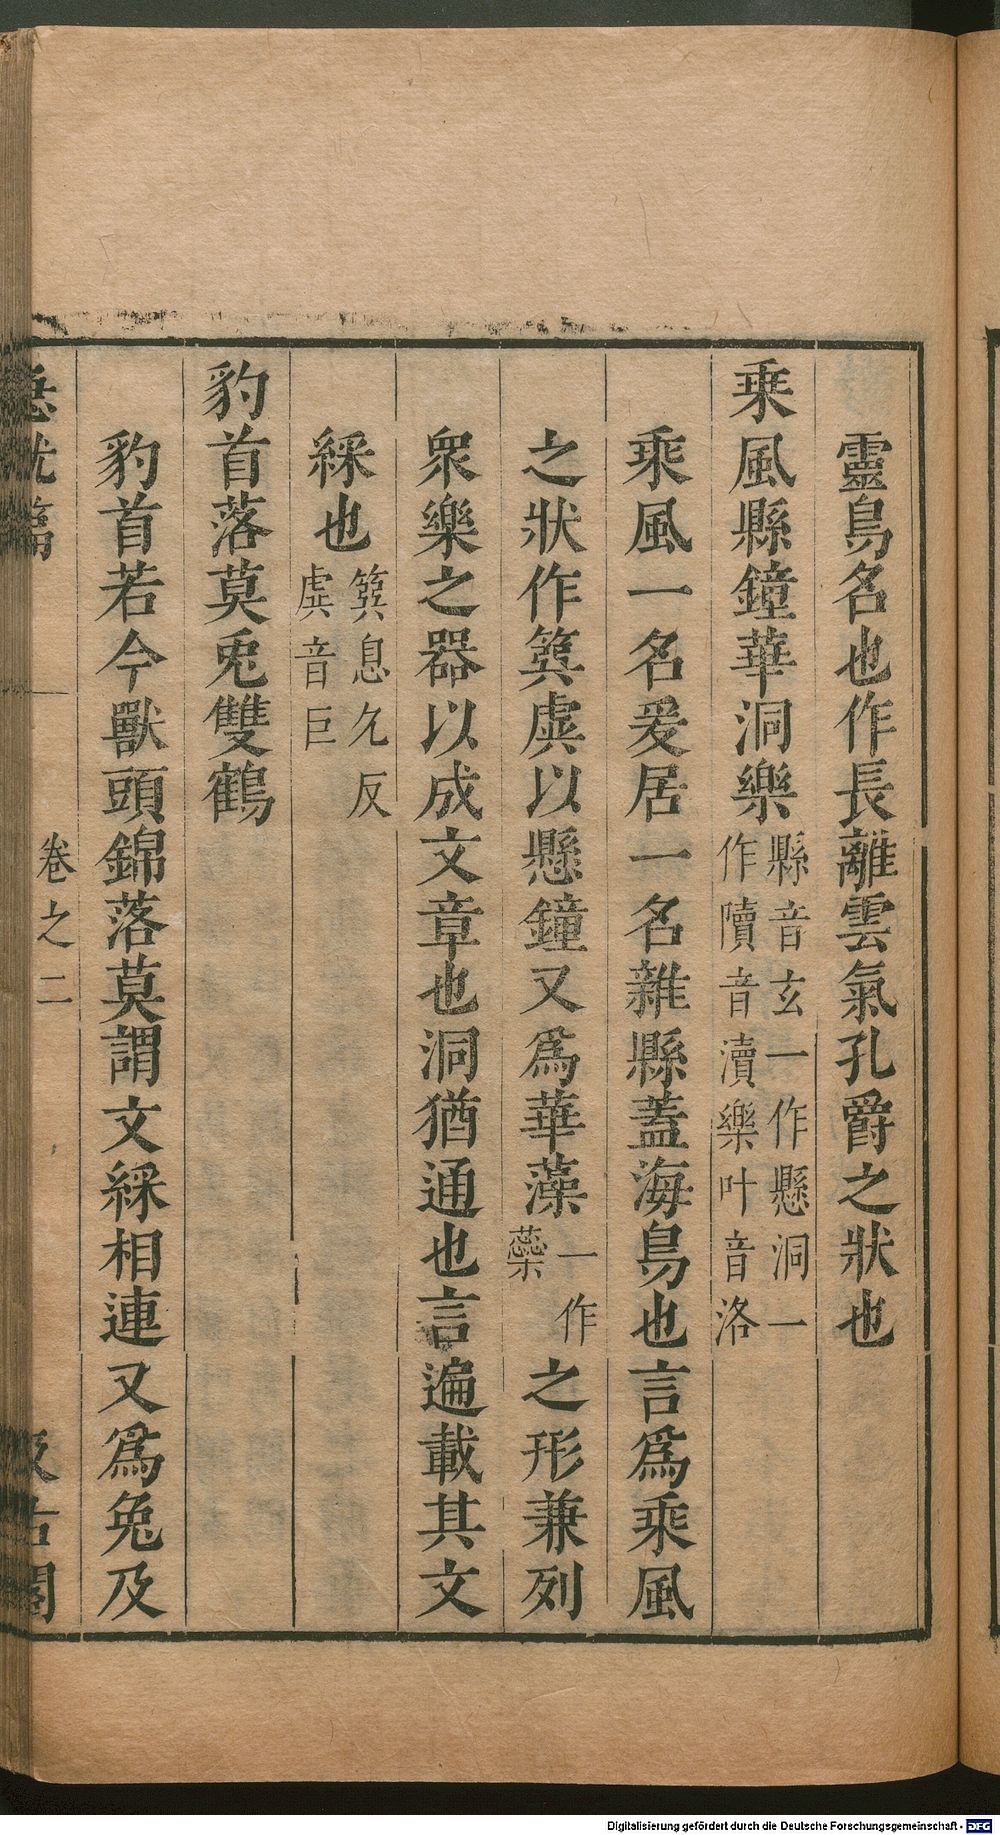 靈鳥名也作長離雲氣孔爵之狀也
乘風縣鐘華洞樂縣音玄一作懸洞一
作隫音瀆樂叶音洛
乘風一名爰居一名雜縣蓋海鳥也言爲乘風
之狀作簨虡以懸鐘又爲華藻一作
蘂之形兼列
衆樂之器以成文章也洞猶通也言遍載其文
綵也簨息允反
虡音巨
豹首落莫兎雙鶴
豹首若今獸頭錦落莫謂文綵相連又爲兔及
急就篇
卷之二
汲古閣
Digitalisierung gefördert durch die Deutsche Forschungsgemeinschaft - DFG